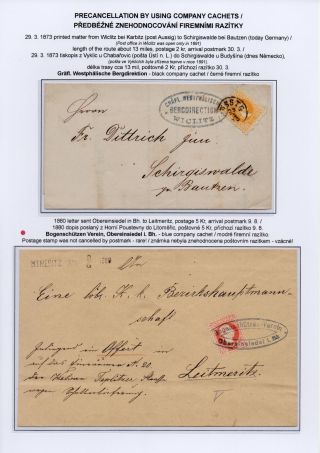 PRECANCELLATION BY USING COMPANY CACHETS /
PŘEDBĚŽNÉ ZNEHODNOCOVÁNÍ FIREMNÍMI RAZÍTKY
29. 3. 1873 printed matter from Wiclitz bei Karbitz (post Aussig) to Schirgiswalde bei Bautzen (today Germany) /
(Post office in Wiclitz was open only in 1891)
length of the route about 13 miles, postage 2 kr, arrival postmark 30. 3. /
29. 3. 1873 tiskopis z Vyklic u Chabařovic (pošta Ústí n. L.) do Schirgiswalde u Budyšína (dnes Německo),
(pošta ve Vyklicích byla zřízena teprve v roce 1891),
délka trasy cca 13 mil, poštovné 2 kr, příchozí razítko 30. 3.
Gräfl. Westphälische Bergdirektion - black company cachet / černé firemní razítko
GRÄFL. WESTPHÄLISCHE
BERGDIRECTION
WICLITZ
Fr. Dittrich jun.
Schirgiswalde
Bautzen
1880 letter sent Obereinsiedel in Bh. to Leitmeritz, postage 5 Kr, arrival postmark 9. 8. /
1880 dopis poslaný z Horní Poustevny do Litoměřic, poštovné 5 Kr, příchozí razítko 9. 8.
Bogenschützen Verein, Obereinsiedel i. Bh. - blue company cachet / modré firemní razítko
Postage stamp was not cancelled by postmark - rare! / známka nebyla znehodnocena poštovním razítkem - vzácné!
An
Eine löb. K. k. Bezirkshauptmann-
schaft
Obereinsiedel i. Bh.
Offert
Leitmeritz